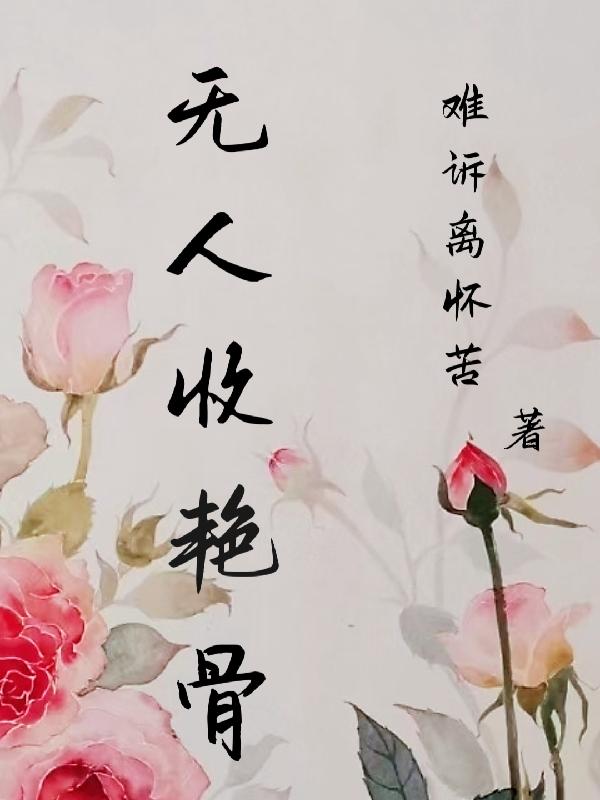 无人收艳骨
难诉离怀苦
著